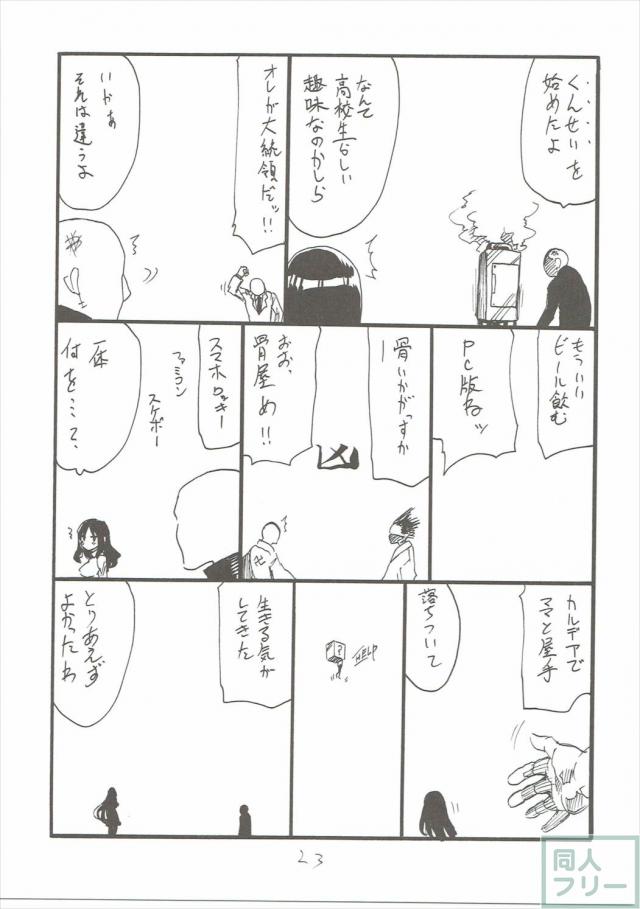 くんせいを
始めたよ
なんて
高校生らしい
趣味なのかしら
オレが大統領だッ!!
いやぁ
それは違うよ
もういい
ビール飲む
PC版ねッ
骨いかがっすかー
おお、
骨屋め!!
凶
スマホロッキー
ファミコン
スケボー
一体
何を…って、
カルデアで
ママと屋手
落ちついて
HELP
生きる気が
してきた
とりあえず
よかったわ
23
同人
フリー